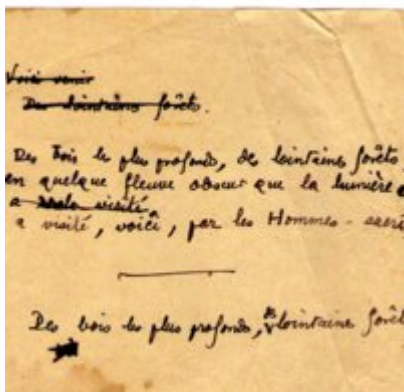 Voici venir
Des lointaines forêts.
Des bois les plus profonds, des lointaines forêts,
en quelque fleuve obscur que la lumière
a visité,
a visité, voici, par les Hommes-
Des bois les plus profonds, de lointaines forêts